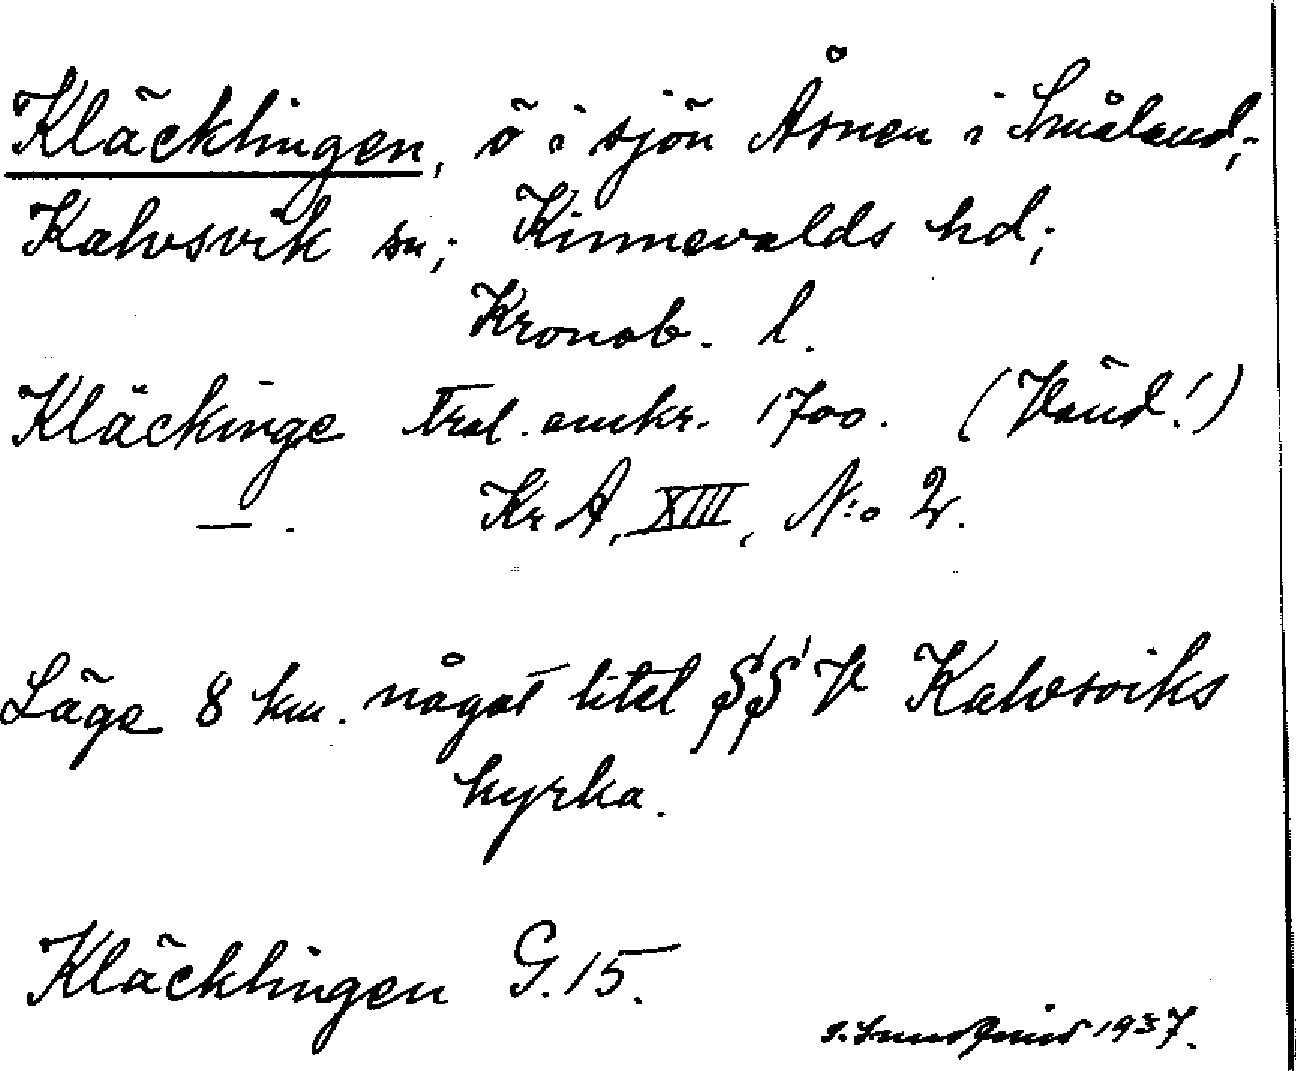 Kläcklingen, ö i sjön Åsnen i Småland;
Kalvsvik sn; Kinnevalds hd;
Kronob. l.
Kläckinge Trol. omkr. 1700. (Vänd!)
— . Kr A, XIII, N:o 2.
Läge 8 km. något litet S S V Kalvsviks
kyrka.
Kläcklingen G. 15.
1937.